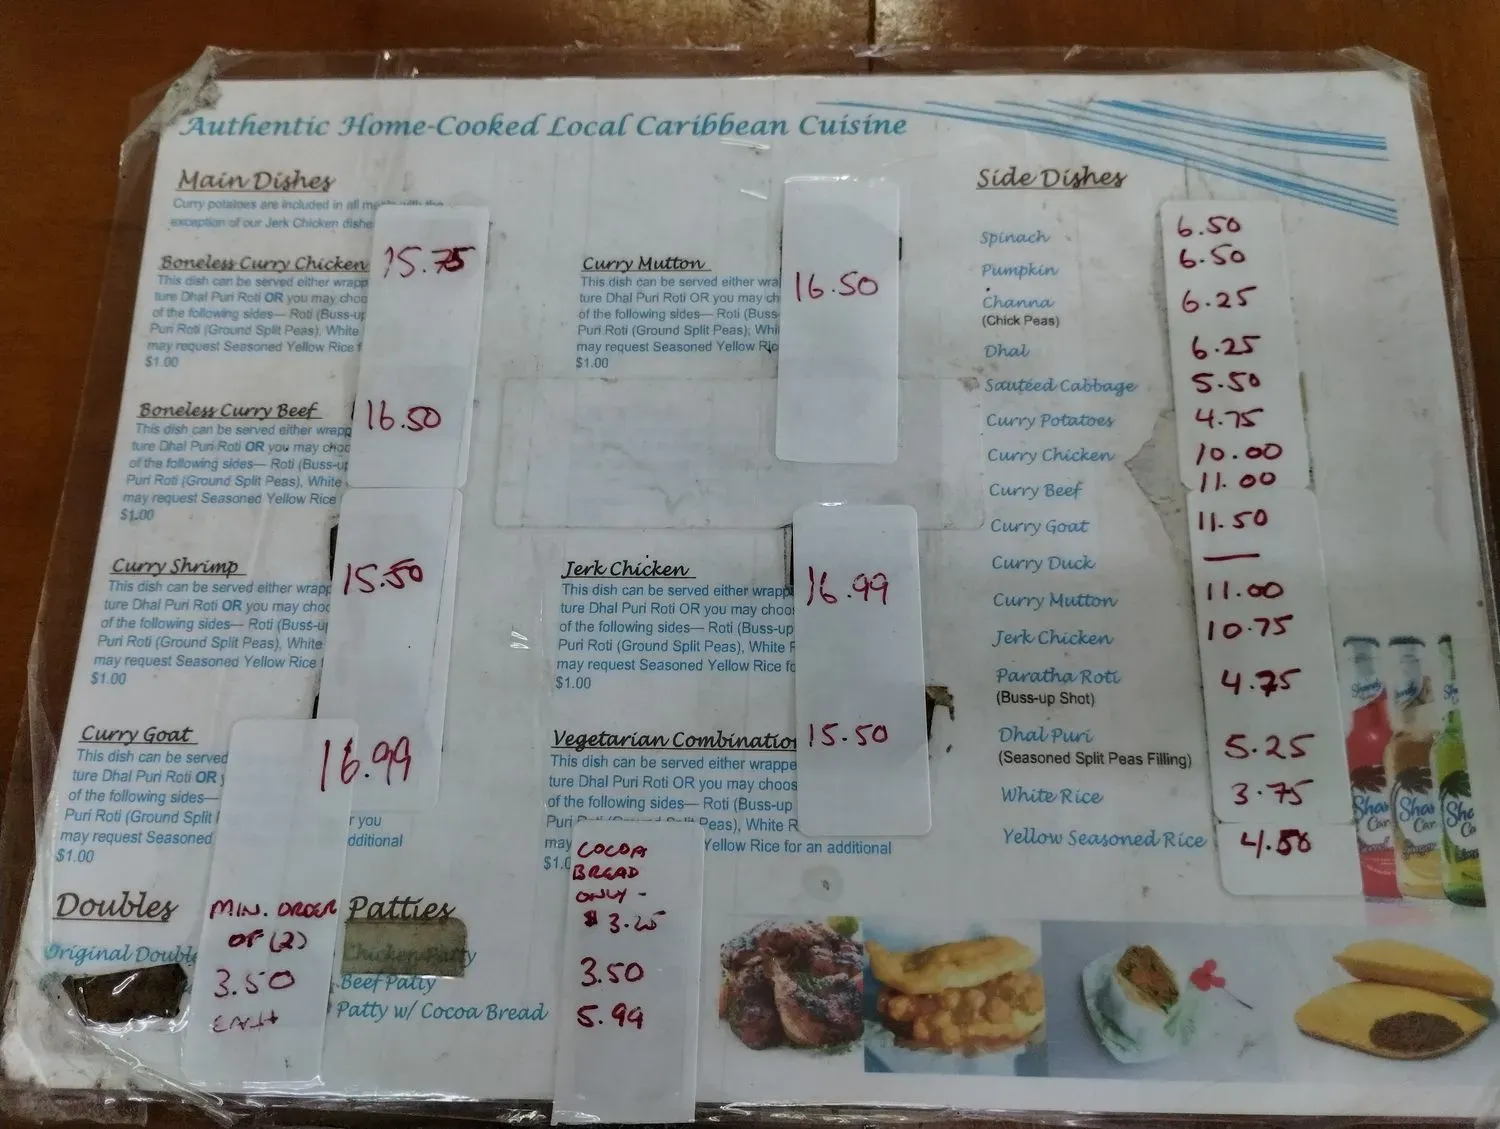 Authentic Home-Cooked Local Caribbean Cuisine
Main Dishes
Curry potatoes are included in all meals with the
exception of our Jerk Chicken dishe
Boneless Curry Chicken 15.75
This dish can be served either wrapp
ture Dhal Puri Roti OR you may choo
of the following sides— Roti (Buss-up
Puri Roti (Ground Split Peas), White
may request Seasoned Yellow Rice f
$1.00
Boneless Curry Beef 16.50
This dish can be served either wrapp
ture Dhal Puri Roti OR you may choo
of the following sides— Roti (Buss-up
Puri Roti (Ground Split Peas), White
may request Seasoned Yellow Rice
$1.00
Curry Shrimp 15.50
This dish can be served either wrapp
ture Dhal Puri Roti OR you may choo
of the following sides— Roti (Buss-up
Puri Roti (Ground Split Peas), White
may request Seasoned Yellow Rice f
$1.00
Curry Goat 16.99
This dish can be served
ture Dhal Puri Roti OR y
of the following sides—
Puri Roti (Ground Split P r you
may request Seasoned dditional
$1.00
Curry Mutton 16.50
This dish can be served either wra
ture Dhal Puri Roti OR you may ch
of the following sides— Roti (Buss-
Puri Roti (Ground Split Peas), Whi
may request Seasoned Yellow Ric
$1.00
Jerk Chicken 16.99
This dish can be served either wrapp
ture Dhal Puri Roti OR you may choo
of the following sides— Roti (Buss-up
Puri Roti (Ground Split Peas), White R
may request Seasoned Yellow Rice fo
$1.00
Vegetarian Combination 15.50
This dish can be served either wrappe
ture Dhal Puri Roti OR you may choos
of the following sides— Roti (Buss-up
Puri Roti (Ground Split Peas), White R
may Yellow Rice for an additional
$1.0
Side Dishes
Spinach 6.50
Pumpkin 6.50
Channa 6.25
(Chick Peas)
Dhal 6.25
Sautéed Cabbage 5.50
Curry Potatoes 4.75
Curry Chicken 10.00
Curry Beef 11.00
Curry Goat 11.50
Curry Duck —
Curry Mutton 11.00
Jerk Chicken 10.75
Paratha Roti 4.75
(Buss-up Shot)
Dhal Puri 5.25
(Seasoned Split Peas Filling)
White Rice 3.75
Yellow Seasoned Rice 4.50
Doubles
Original Doubl
MIN. ORDER
OF (2)
3.50
EACH
Patties
Chicken Patty
Beef Patty 3.50
Patty w/ Cocoa Bread 5.99
COCOA
BREAD
ONLY -
$3.25
Shandy
Shan Sha She
Car Car Ca